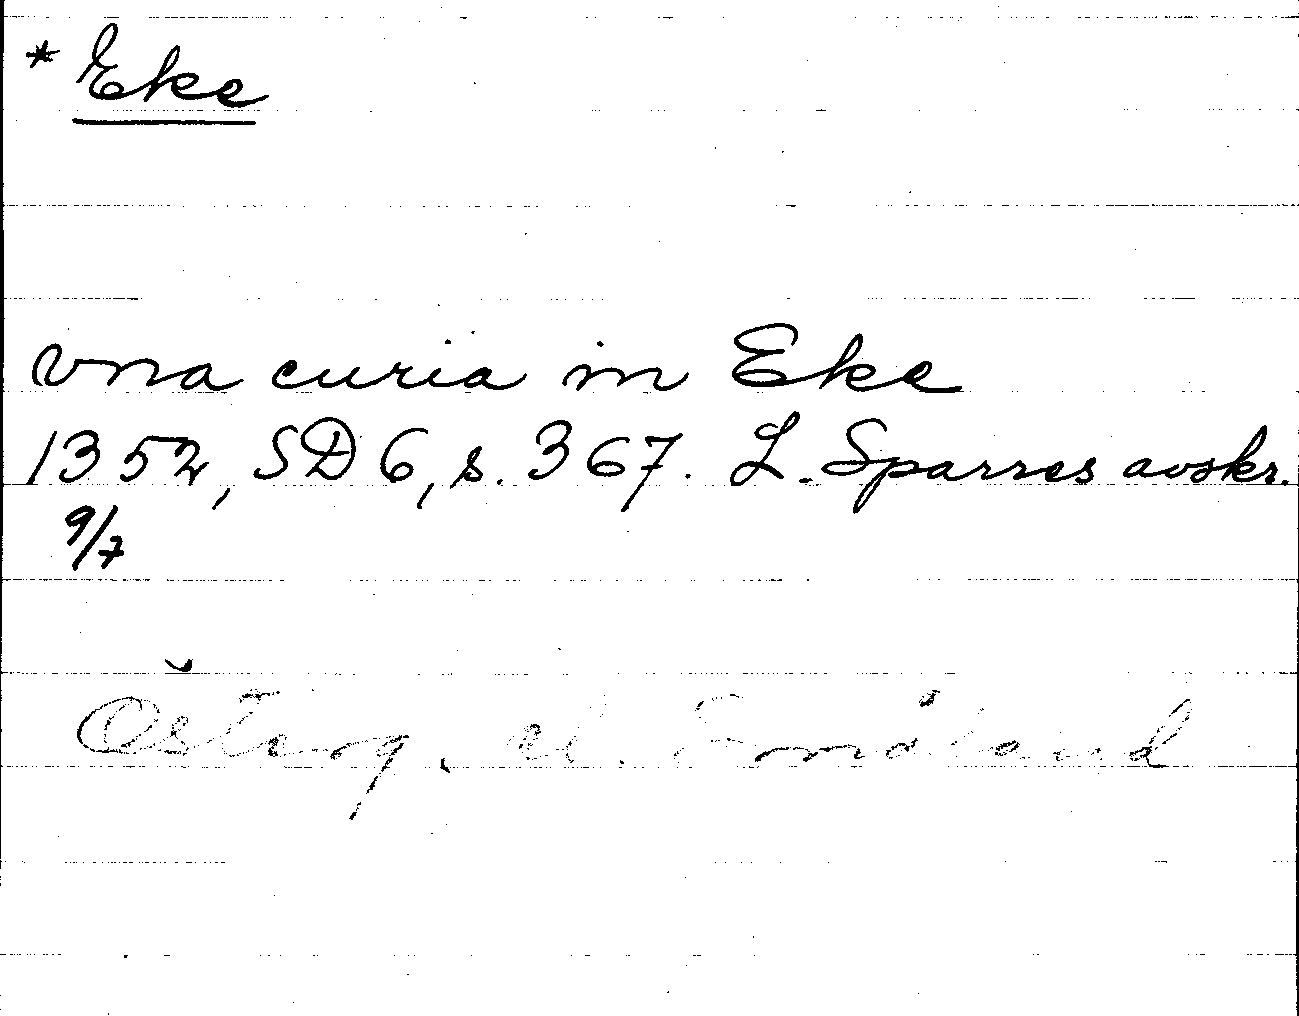 * Eke
vna curia in Eke
1352, SD 6, s. 367. L. Sparres avskr.
9/7
Österg. el. Småland